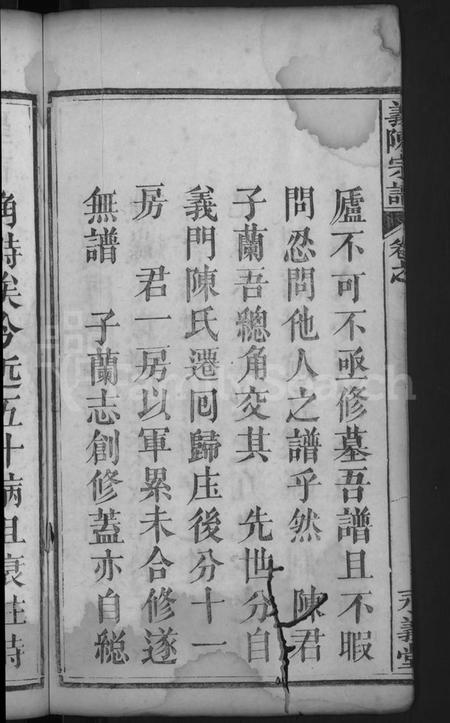 義陳宗譜 卷之
永義堂
廬不可不亟修墓吾譜且不暇
問忍問他人之譜乎然 陳君
子蘭吾總角交其 先世分自
義門陳氏遷囘歸庄後分十一
房 君一房以軍累未合修遂
無譜 子蘭志創修蓋亦自總
角時矣今近五十病且衰往時
FamilySearch